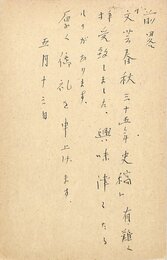 前略
文芸春秋三十五年史稿 有難く
拝受致しました、興味津々たる
ものがあります
厚く御礼を申上げます
五月十三日